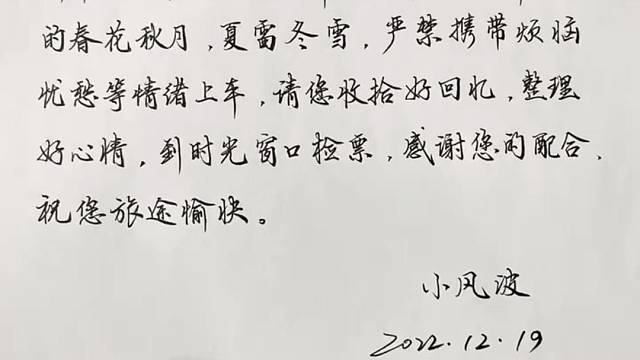 的春花秋月，夏雷冬雪，严禁携带烦恼
忧愁等情绪上车，请您收拾好回忆，整理
好心情，到时光窗口检票，感谢您的配合，
祝您旅途愉快。
小风波
2022.12.19